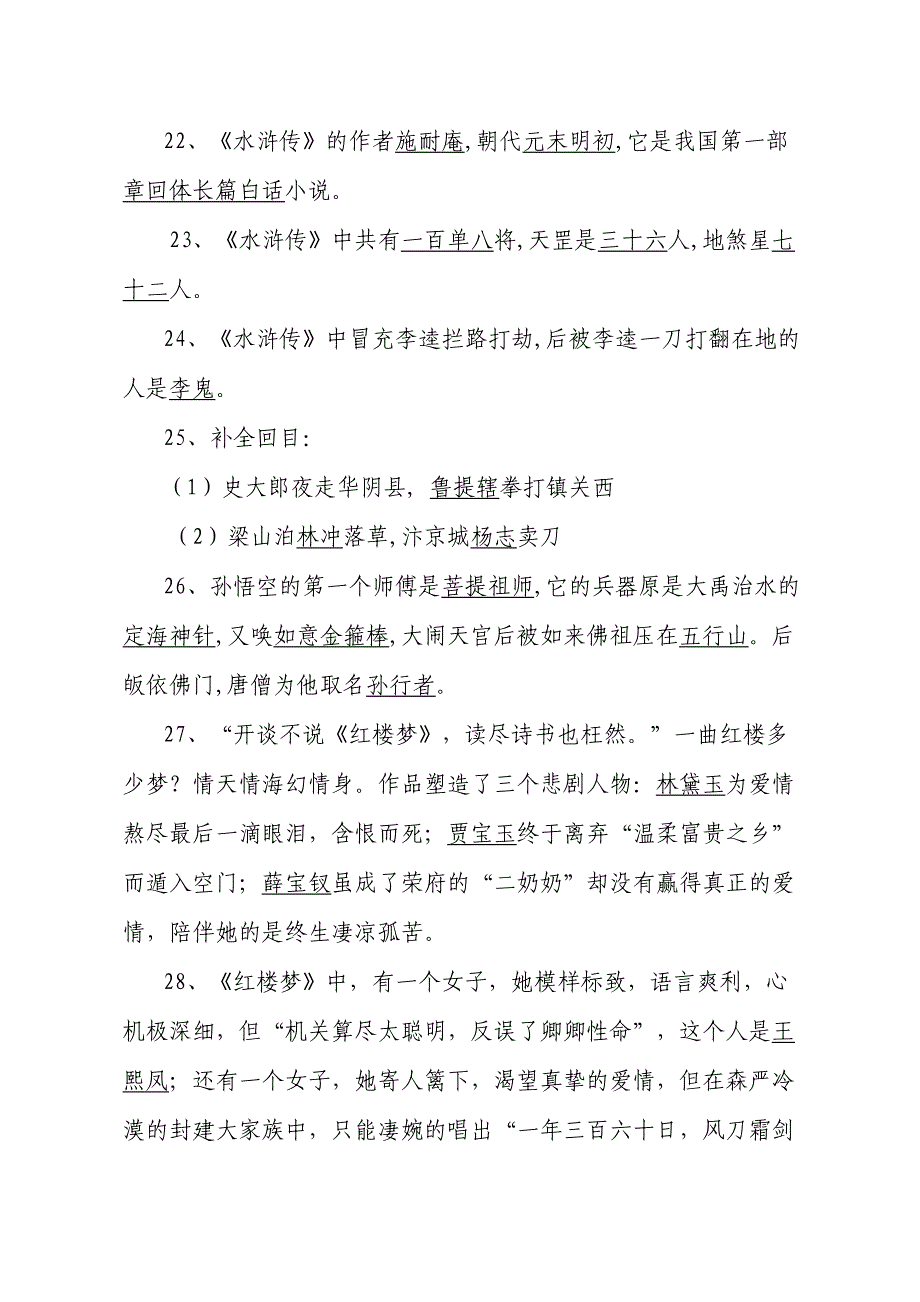 22、《水浒传》的作者施耐庵,朝代元末明初,它是我国第一部
章回体长篇白话小说。
23、《水浒传》中共有一百单八将,天罡是三十六人,地煞星七
十二人。
24、《水浒传》中冒充李逵拦路打劫,后被李逵一刀打翻在地的
人是李鬼。
25、补全回目：
（1）史大郎夜走华阴县，鲁提辖拳打镇关西
（2）梁山泊林冲落草,汴京城杨志卖刀
26、孙悟空的第一个师傅是菩提祖师,它的兵器原是大禹治水的
定海神针,又唤如意金箍棒,大闹天宫后被如来佛祖压在五行山。后
皈依佛门,唐僧为他取名孙行者。
27、“开谈不说《红楼梦》，读尽诗书也枉然。”一曲红楼多
少梦？情天情海幻情身。作品塑造了三个悲剧人物：林黛玉为爱情
熬尽最后一滴眼泪，含恨而死；贾宝玉终于离弃“温柔富贵之乡”
而遁入空门；薛宝钗虽成了荣府的“二奶奶”却没有赢得真正的爱
情，陪伴她的是终生凄凉孤苦。
28、《红楼梦》中，有一个女子，她模样标致，语言爽利，心
机极深细，但“机关算尽太聪明，反误了卿卿性命”，这个人是王
熙凤；还有一个女子，她寄人篱下，渴望真挚的爱情，但在森严冷
漠的封建大家族中，只能凄婉的唱出“一年三百六十日，风刀霜剑